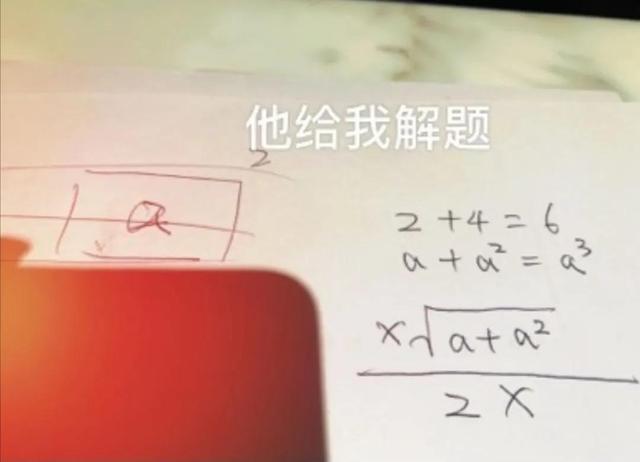 他给我解题
a
2
2 + 4 = 6
a + a² = a³
x√(a + a²)
2x